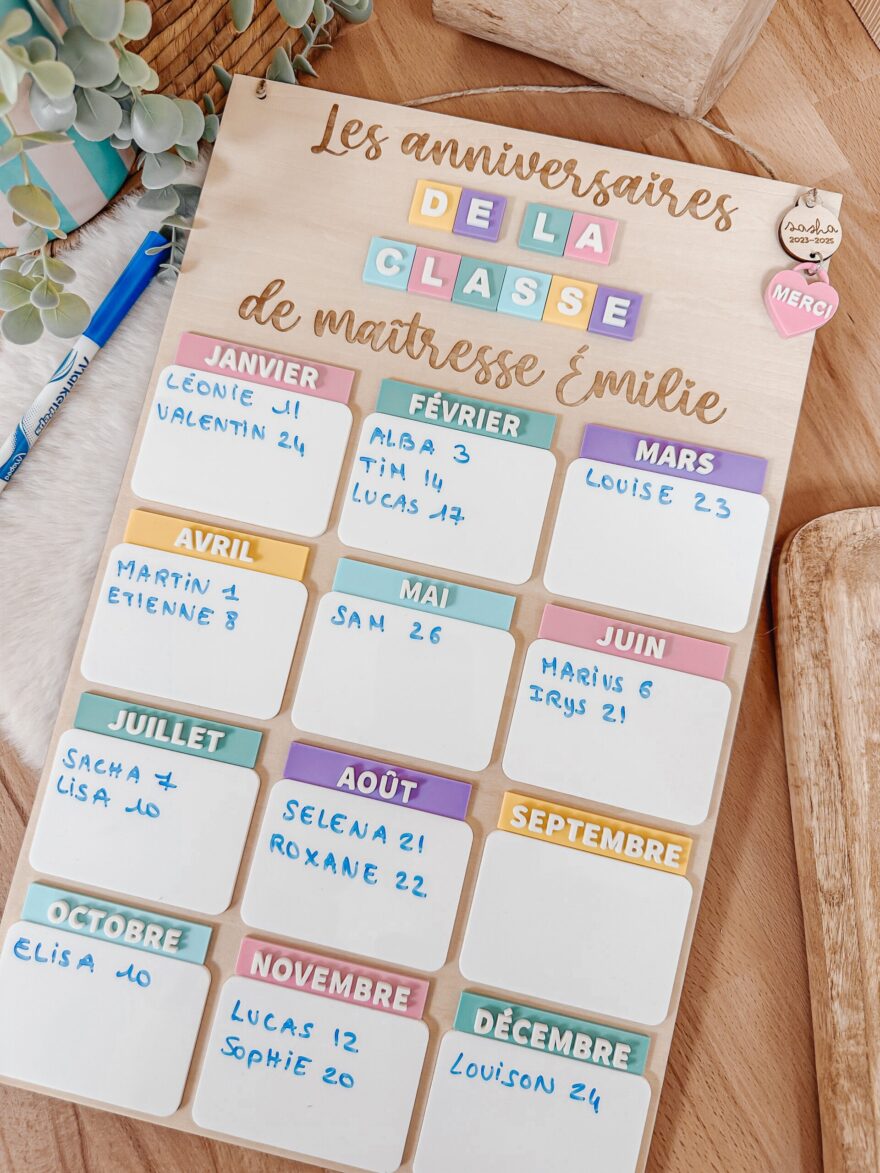 Les anniversaires
DE LA
CLASSE
de maîtresse Émilie
sasha
2023-2025
MERCI
JANVIER
LÉONIE 11
VALENTIN 24
FÉVRIER
ALBA 3
TIM 14
LUCAS 17
MARS
LOUISE 23
AVRIL
MARTIN 1
ETIENNE 8
MAI
SAM 26
JUIN
MARIUS 6
IRYS 21
JUILLET
SACHA 7
LISA 10
AOÛT
SELENA 21
ROXANE 22
SEPTEMBRE
OCTOBRE
ELISA 10
NOVEMBRE
LUCAS 12
SOPHIE 20
DÉCEMBRE
LOUISON 24
Marker'peps
Maped